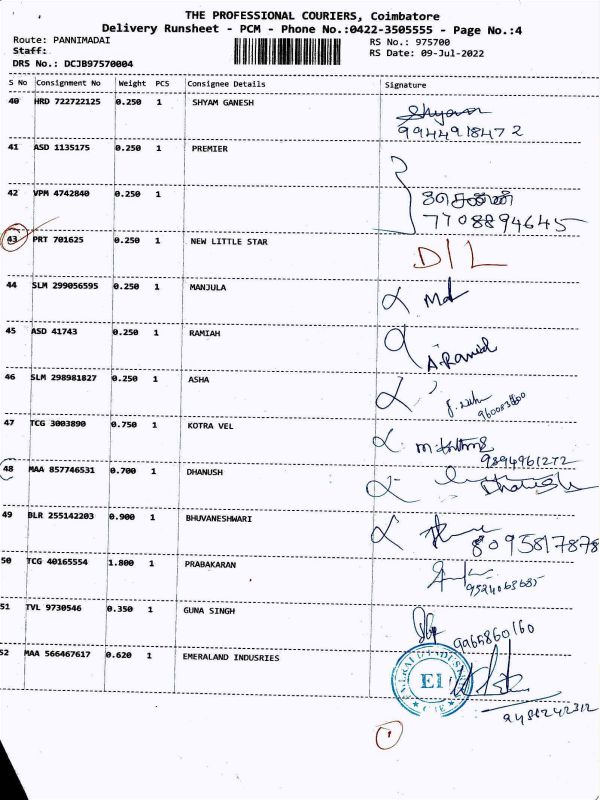 THE PROFESSIONAL COURIERS, Coimbatore
Delivery Runsheet - PCM - Phone No.:0422-3505555 - Page No.:4
Route: PANNIMADAI
RS No.: 975700
Staff:
RS Date: 09-Jul-2022
DRS No.: DCJB97570004
S No Consignment No Weight PCS Consignee Details Signature
40 HRD 722722125 0.250 1 SHYAM GANESH Shyam
9944918472
41 ASD 1135175 0.250 1 PREMIER
42 VPM 4742840 0.250 1
7708894645
43 PRT 701625 0.250 1 NEW LITTLE STAR D/L
44 SLM 299056595 0.250 1 MANJULA
45 ASD 41743 0.250 1 RAMIAH
46 SLM 298981827 0.250 1 ASHA
47 TCG 3003890 0.750 1 KOTRA VEL
9894961272
48 MAA 857746531 0.700 1 DHANUSH
49 BLR 255142203 0.900 1 BHUVANESHWARI
8095817878
50 TCG 40165554 1.800 1 PRABAKARAN
51 TVL 9730546 0.350 1 GUNA SINGH
9965860160
52 MAA 566467617 0.620 1 EMERALAND INDUSRIES
EI
1